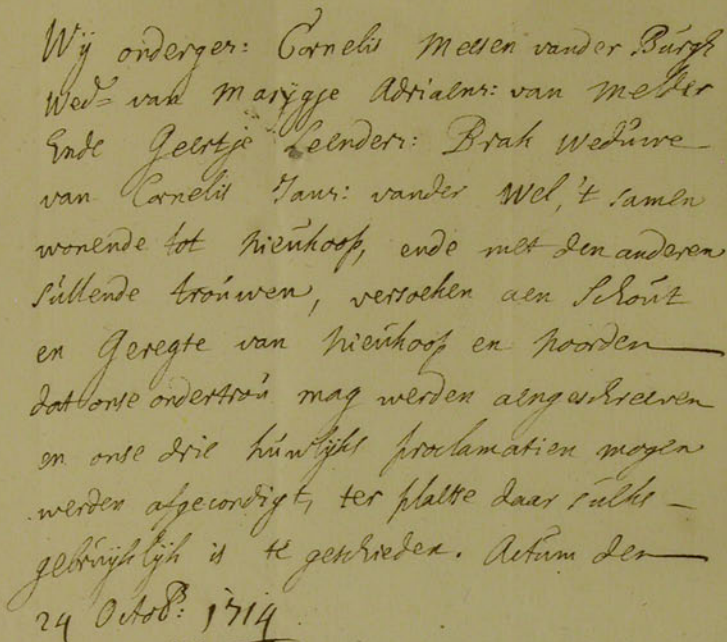 Wij onderger: Cornelis Meesen vander Burgh
Wedr van Marijgje Adriaens: van Metter
Ende Geertje Leenders: Brak weduwe
van Cornelis Jans: vander Wel, 't samen
wonende tot Nieukoop, ende met den anderen
sullende trouwen, versoeken aen Schout
en Geregte van Nieukoop en Noorden
dat onse ondertrou mag werden aengeschreeven
en onse drie huwlijks proclamatien mogen
werden afgecondigt, ter plaetse daar sulks
gebruijklijk is te geschieden. Actum den
24 Octob: 1714